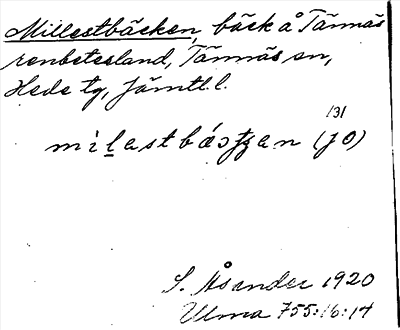 Millestbäcken, bäck å Tännäs
renbetesland, Tännäs sn,
Hede tg, Jämtl. l.
/3/
(jo)
S. Åsander 1920
Ulma 755:16:14